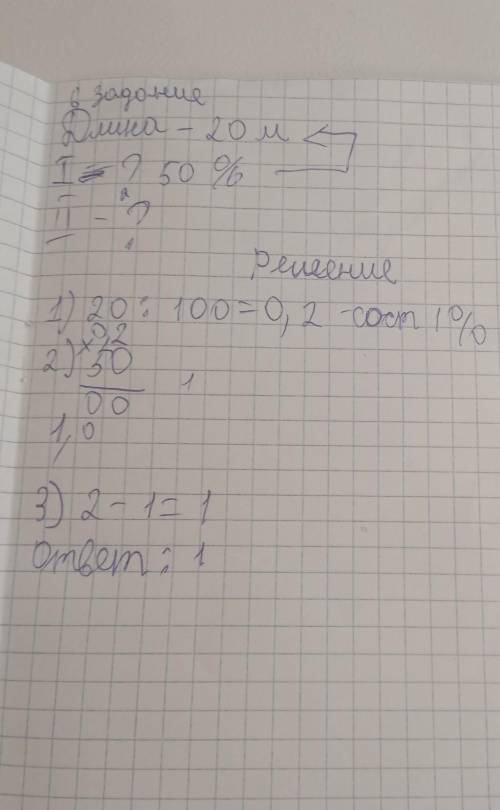 6 задание
Длина - 20 м
I - ? 50 %
II - ?
Решение
1) 20 : 100 = 0,2 - сост 1%
0,2
2) × 50
00 1
1,0
3) 2 - 1 = 1
Ответ : 1